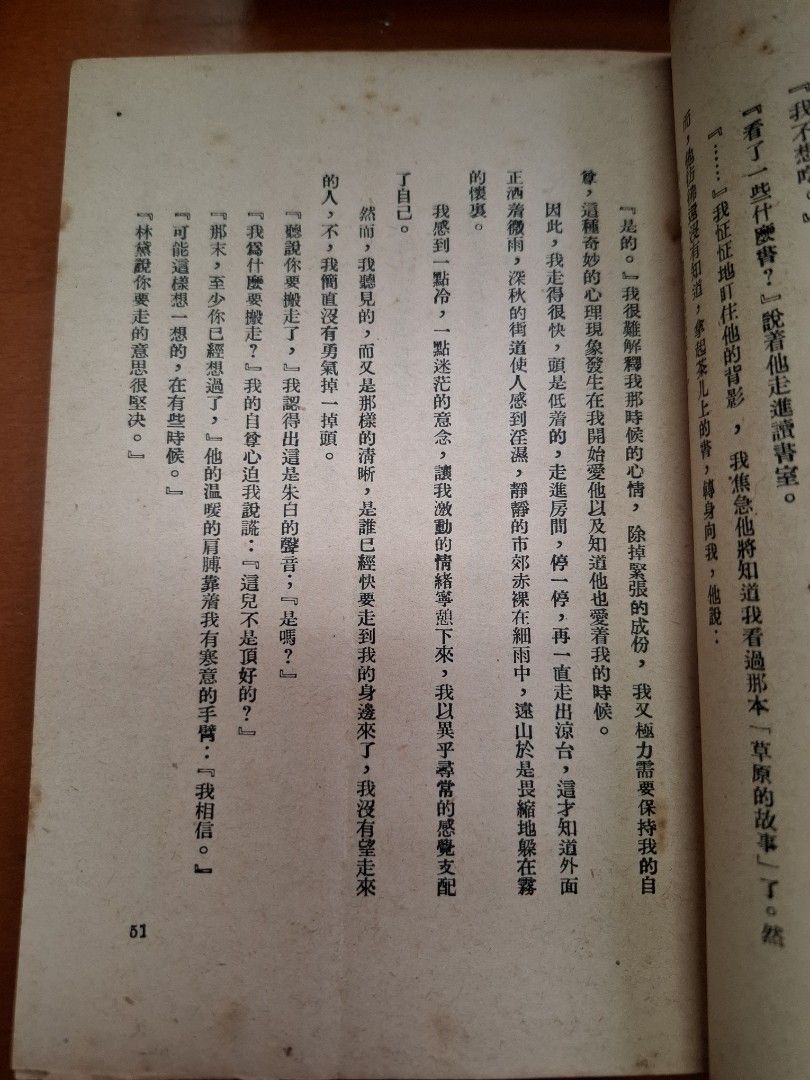 『我不想吃。』
『看了一些什麼書?』說着他走進讀書室。
『……』我怔怔地盯住他的背影,我焦急他將知道我看過那本「草原的故事」了。然
而,他彷彿還沒有知道,拿起茶几上的書,轉身向我,他說:
『是的。』我很難解釋我那時候的心情,除掉緊張的成份,我又極力需要保持我的自
尊,這種奇妙的心理現象發生在我開始愛他以及知道他也愛着我的時候。
因此,我走得很快,頭是低着的,走進房間,停一停,再一直走出涼台,這才知道外面
正洒着微雨,深秋的街道使人感到淫濕,靜靜的市郊赤裸在細雨中,遠山於是畏縮地躲在霧
的懷裏。
我感到一點冷,一點迷茫的意念,讓我激動的情緒寧憩下來,我以異乎尋常的感覺支配
了自己。
然而,我聽見的,而又是那樣的清晰,是誰已經快要走到我的身邊來了,我沒有望走來
的人,不,我簡直沒有勇氣掉一掉頭。
『聽說你要搬走了,』我認得出這是朱白的聲音;『是嗎?』
『我爲什麼要搬走?』我的自尊心迫我說謊:『這兒不是頂好的?』
『那末,至少你已經想過了,』他的温暖的肩膊靠着我有寒意的手臂:『我相信。』
『可能這樣想一想的,在有些時候。』
『林黛說你要走的意思很堅决。』
51